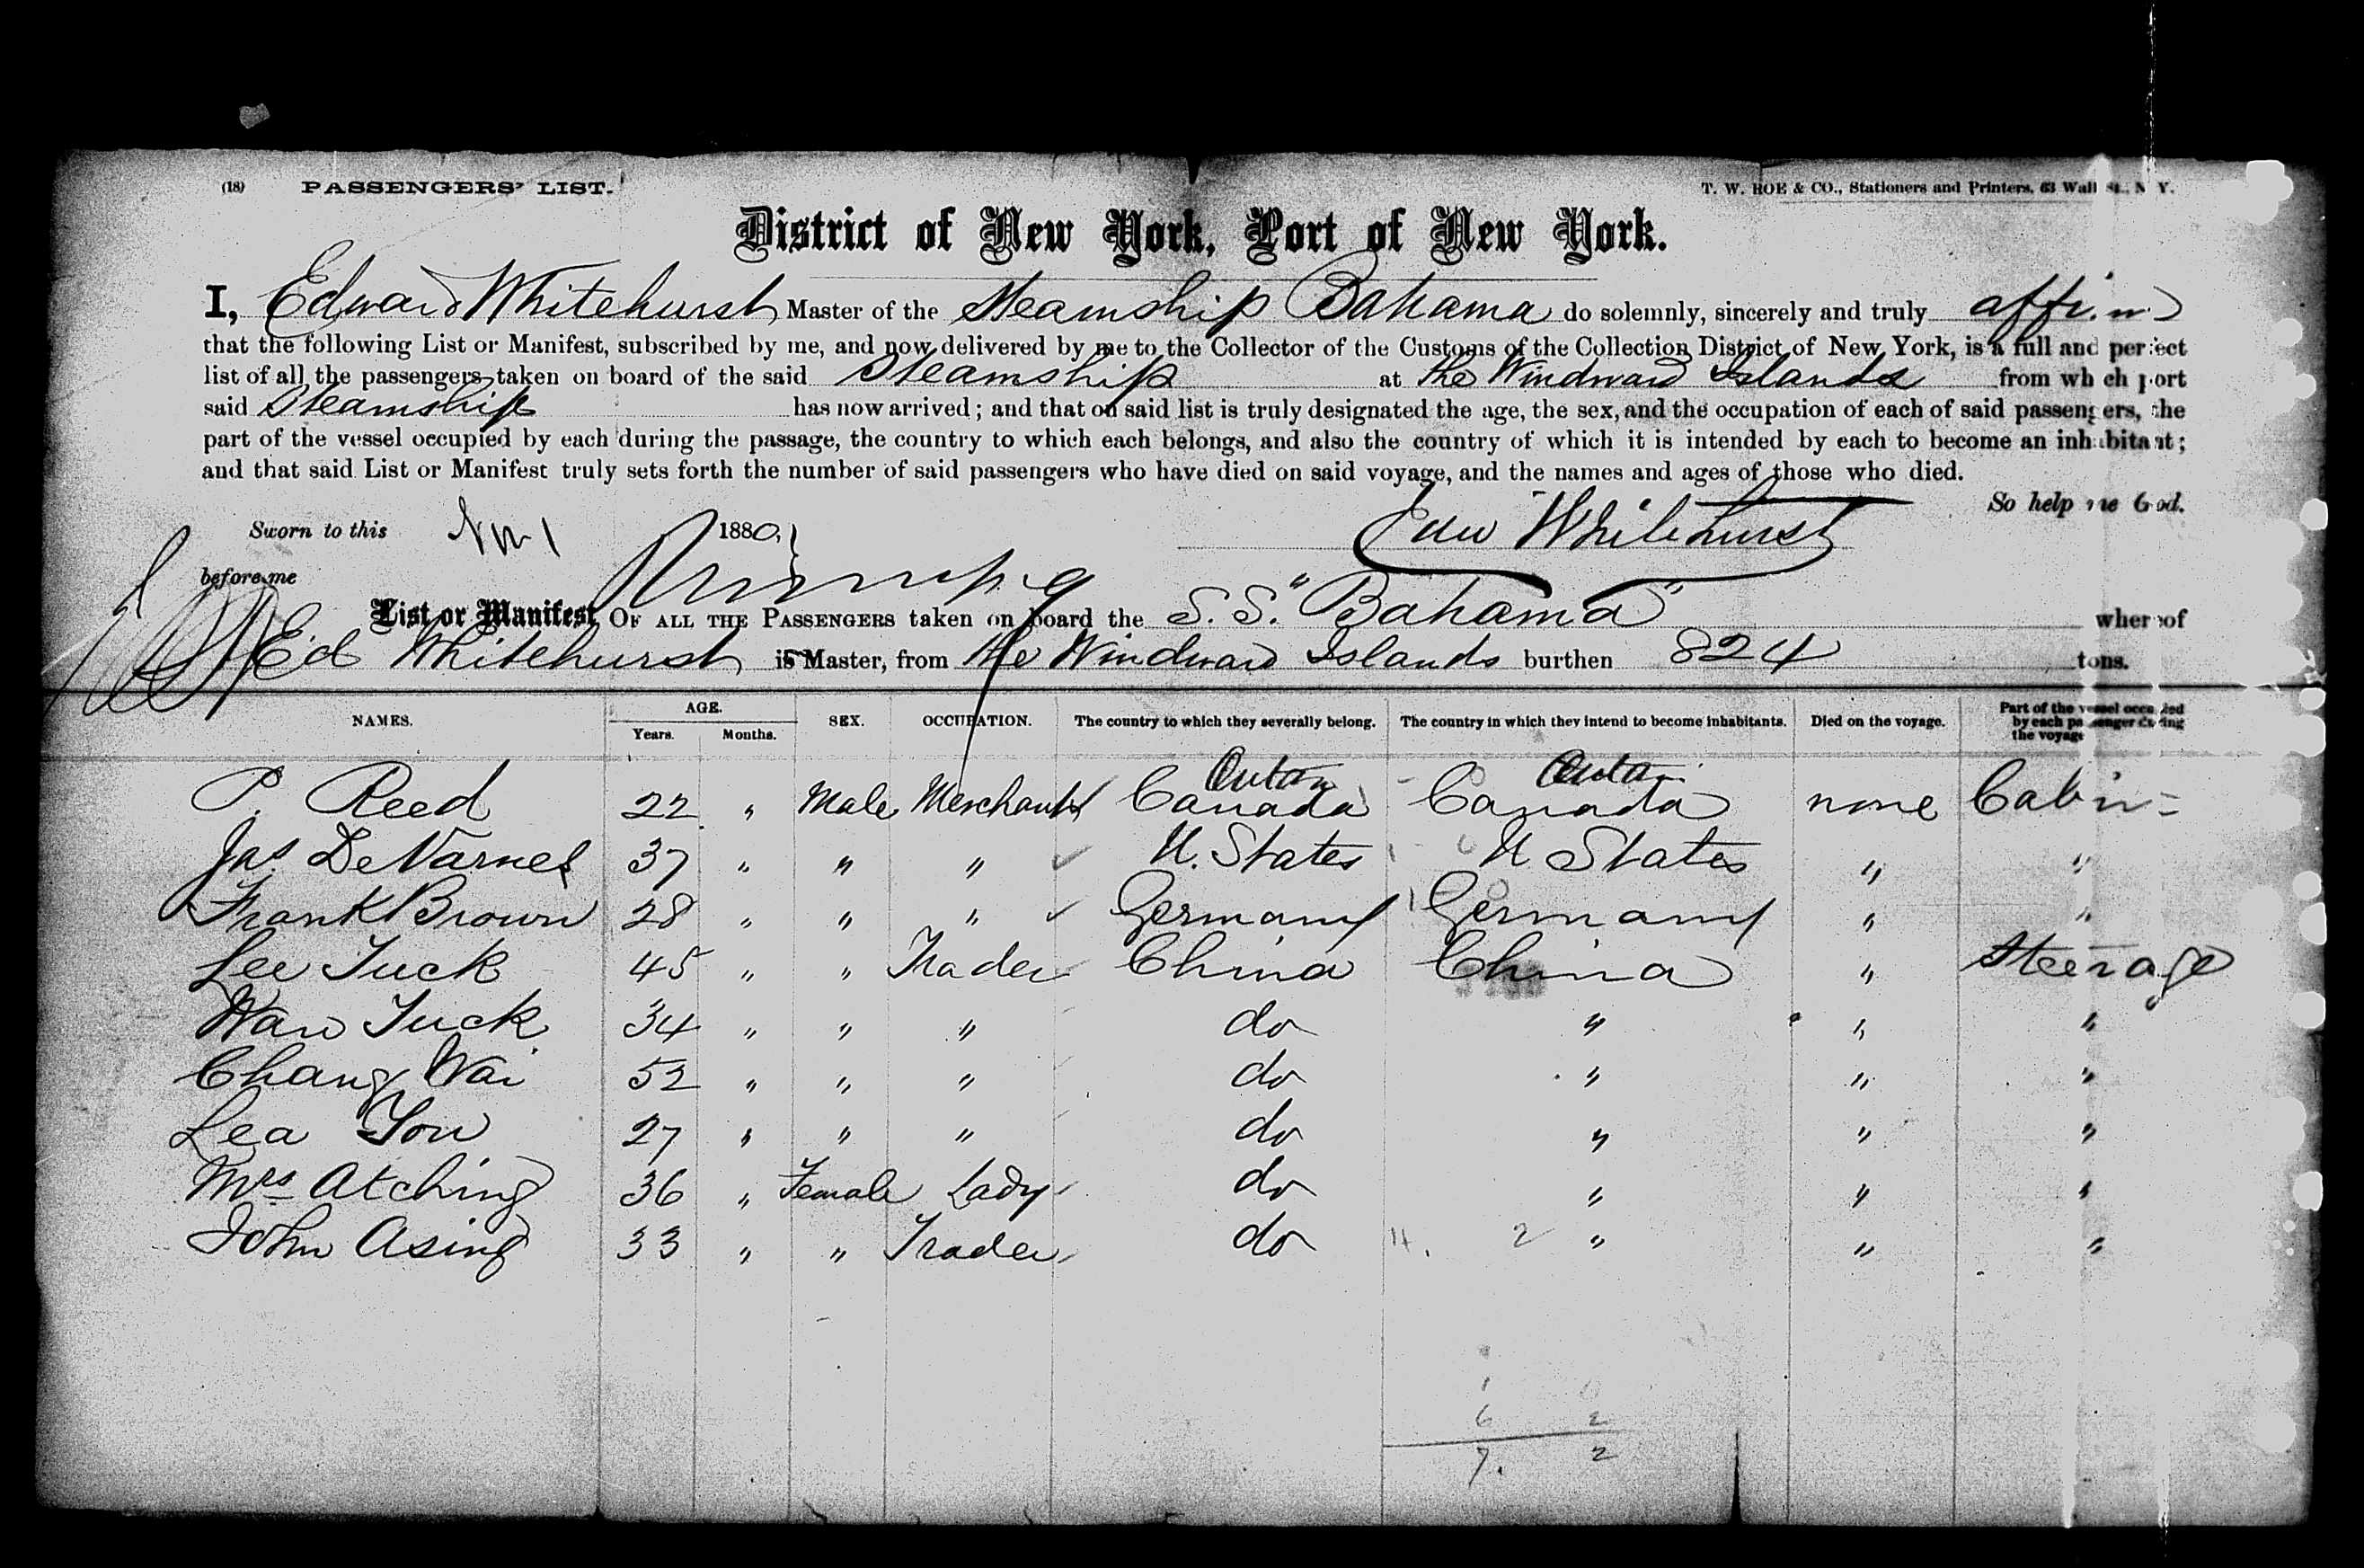 (18) PASSENGERS' LIST. T. W. ROE & CO., Stationers and Printers, 63 Wall St., N. Y.
District of New York, Port of New York.
I, Edward Whitehurst Master of the Steamship Bahama do solemnly, sincerely and truly affirm
that the following List or Manifest, subscribed by me, and now delivered by me to the Collector of the Customs of the Collection District of New York, is a full and perfect
list of all the passengers taken on board of the said Steamship at the Windward Islands from which port
said Steamship has now arrived; and that on said list is truly designated the age, the sex, and the occupation of each of said passengers, the
part of the vessel occupied by each during the passage, the country to which each belongs, and also the country of which it is intended by each to become an inhabitant;
and that said List or Manifest truly sets forth the number of said passengers who have died on said voyage, and the names and ages of those who died.
So help me God.
Sworn to this 1 1880, Edw Whitehurst
before me
List or Manifest OF ALL THE PASSENGERS taken on board the S.S. "Bahama" whereof
Ed Whitehurst is Master, from the Windward Islands burthen 824 tons.
NAMES. AGE. Years. Months. SEX. OCCUPATION. The country to which they severally belong. The country in which they intend to become inhabitants. Died on the voyage. Part of the vessel occupied by each passenger during the voyage
P. Reed 22 " Male Merchant Canada Canada none Cabin
Jas DeVarnel 37 " " " U. States U States " "
Frank Brown 28 " " " Germany Germany " "
Lee Tuck 45 " " Trader China China " Steerage
Wan Tuck 34 " " " do " " "
Chang Wai 52 " " " do " " "
Lea You 27 " " " do " " "
Mrs Atching 36 " Female Lady do " " "
John Asing 33 " " Trader do 4. 2 " " "
1
6 2
7. 2